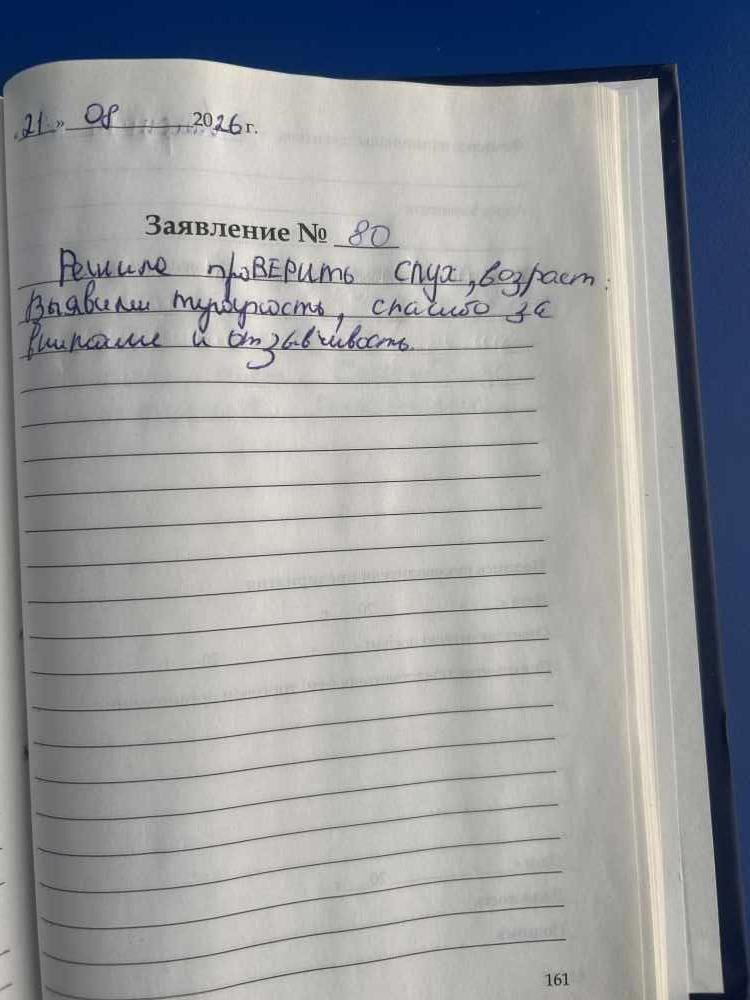 «21» 08 2026 г.
Заявление № 80
Решила проверить слух, возраст.
Выявили тугоухость, спасибо за
внимание и отзывчивость.
161